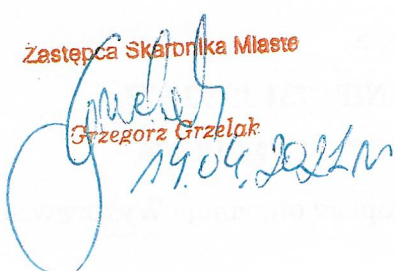 Zastępca Skarbnika Miasta
Grzegorz Grzelak
14.04.2021 r.